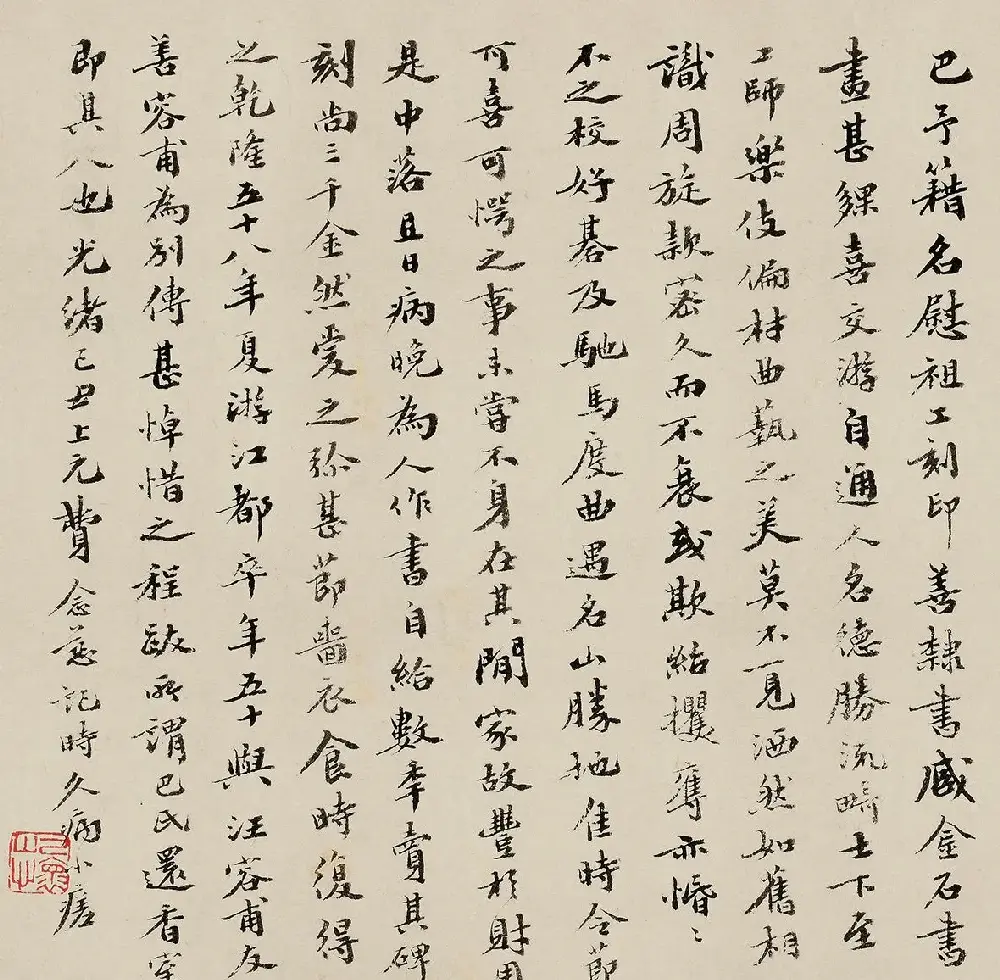 巴予籍名慰祖工刻印善隸書臧金石書
畫甚夥喜交游自通人名德勝流畸士下至
工師樂伎偏材曲藝之美莫不一見洒然如舊相
識周旋款密久而不衰或欺紿攫奪亦惛〻
不之校好碁及馳馬度曲遇名山勝地佳時令節
可喜可愕之事未嘗不身在其間家故豐於財用
是中落且日病晚為人作書自給數年賣其碑
刻尚三千金然愛之弥甚節嗇衣食時復得
之乾隆五十八年夏游江都卒年五十與汪容甫友
善容甫為別傳甚悼惜之程跋所謂巴氏還香室
即其人也光緒己丑上元費念慈記時久病小瘥